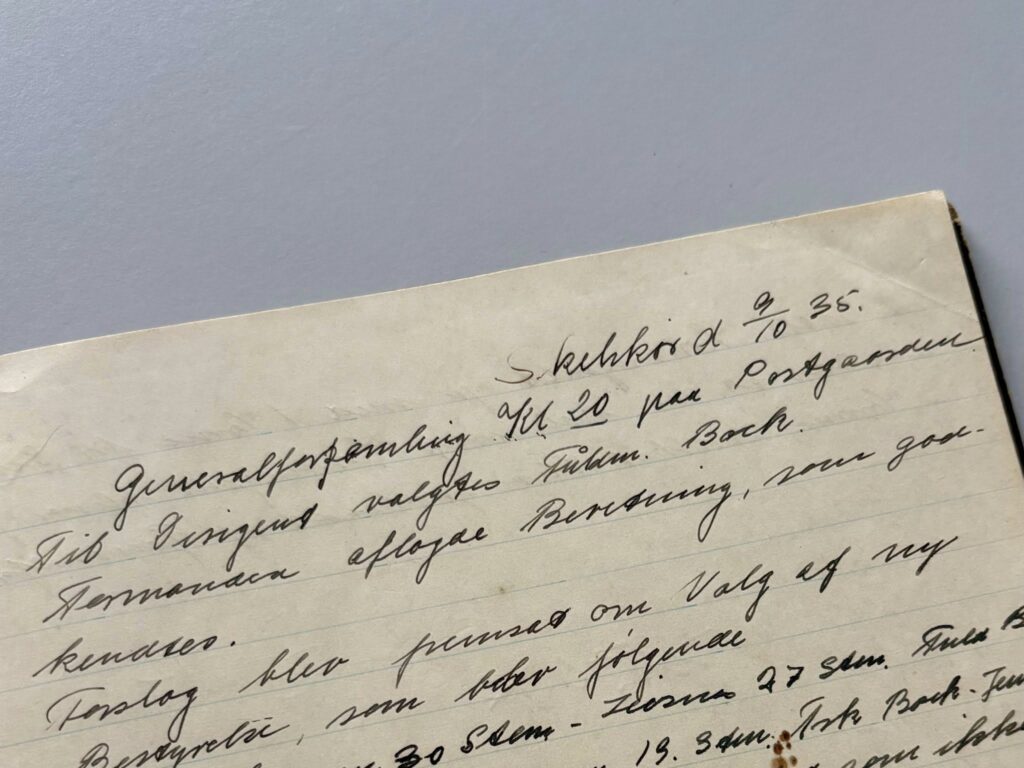 Skelskør d 9/10 35.
Generalforsamling Kl 20 paa Postgaarden
Til Dirigent valgtes Fuldm. Bock.
Formanden aflagde Beretning, som god-
kendtes.
Forslag blev fremsat om Valg af ny
Bestyrelse, som blev følgende
30 Stem - 27 Stm.
19. Stm. Bock - 
som ikke